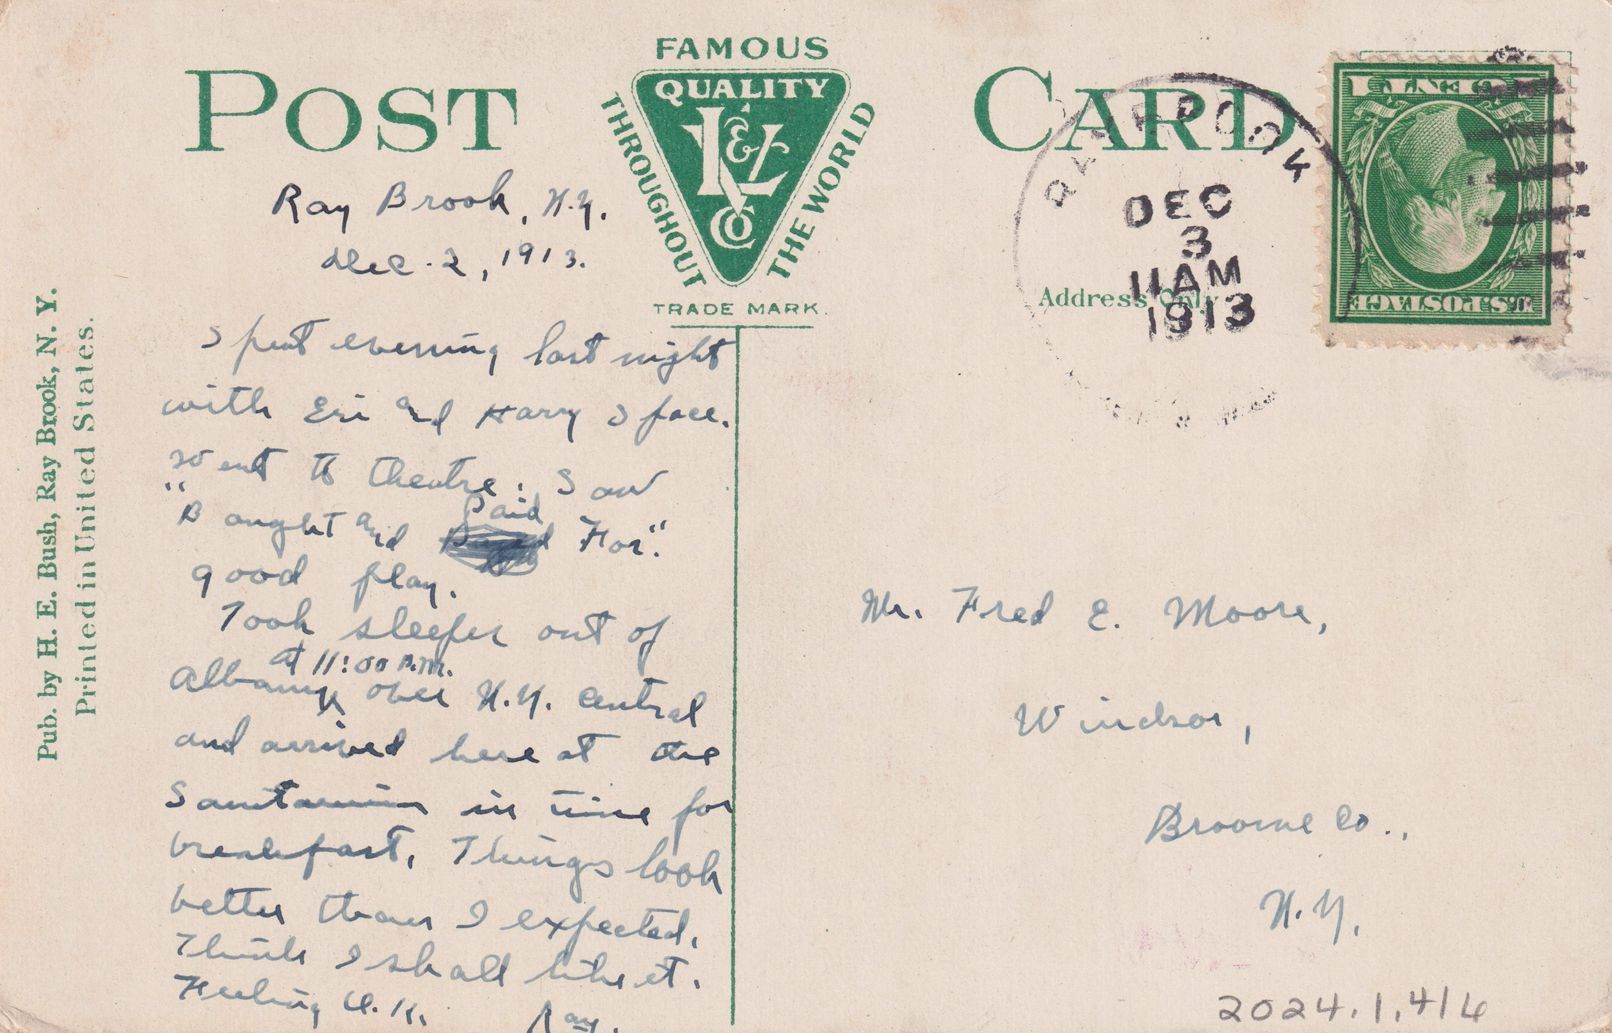 POST CARD
FAMOUS
QUALITY
K&L
Co
THROUGHOUT
THE WORLD
TRADE MARK.
Address Only
RAY BROOK
DEC
3
11 AM
1913
U.S. POSTAGE
1 CENT 1
Pub. by H. E. Bush, Ray Brook, N. Y.
Printed in United States.
Ray Brook, N.Y.
Dec. 2, 1913.
Spent evening last night
with Eri and Harry Space.
Went to theatre. Saw
"Bought and Paid For".
good play.
Took sleeper out of
Albany at 11:00 P.M. over N.Y. Central
and arrived here at the
Sanitarium in time for
breakfast. Things look
better than I expected.
Think I shall like it.
Feeling O.K. Ray.
Mr. Fred E. Moore,
Windsor,
Broome Co.,
N.Y.
2024.1.416